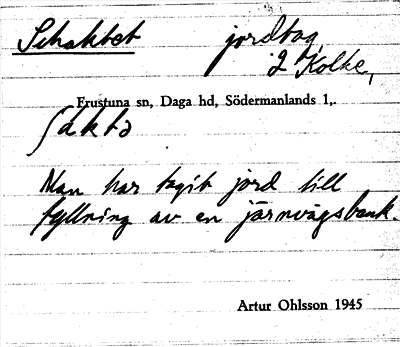 Schaktet jordtag
2 Kolke,
Frustuna sn, Daga hd, Södermanlands l,.
ʃakta
Man har tagit jord till
fyllning av en järnvägsbank.
Artur Ohlsson 1945